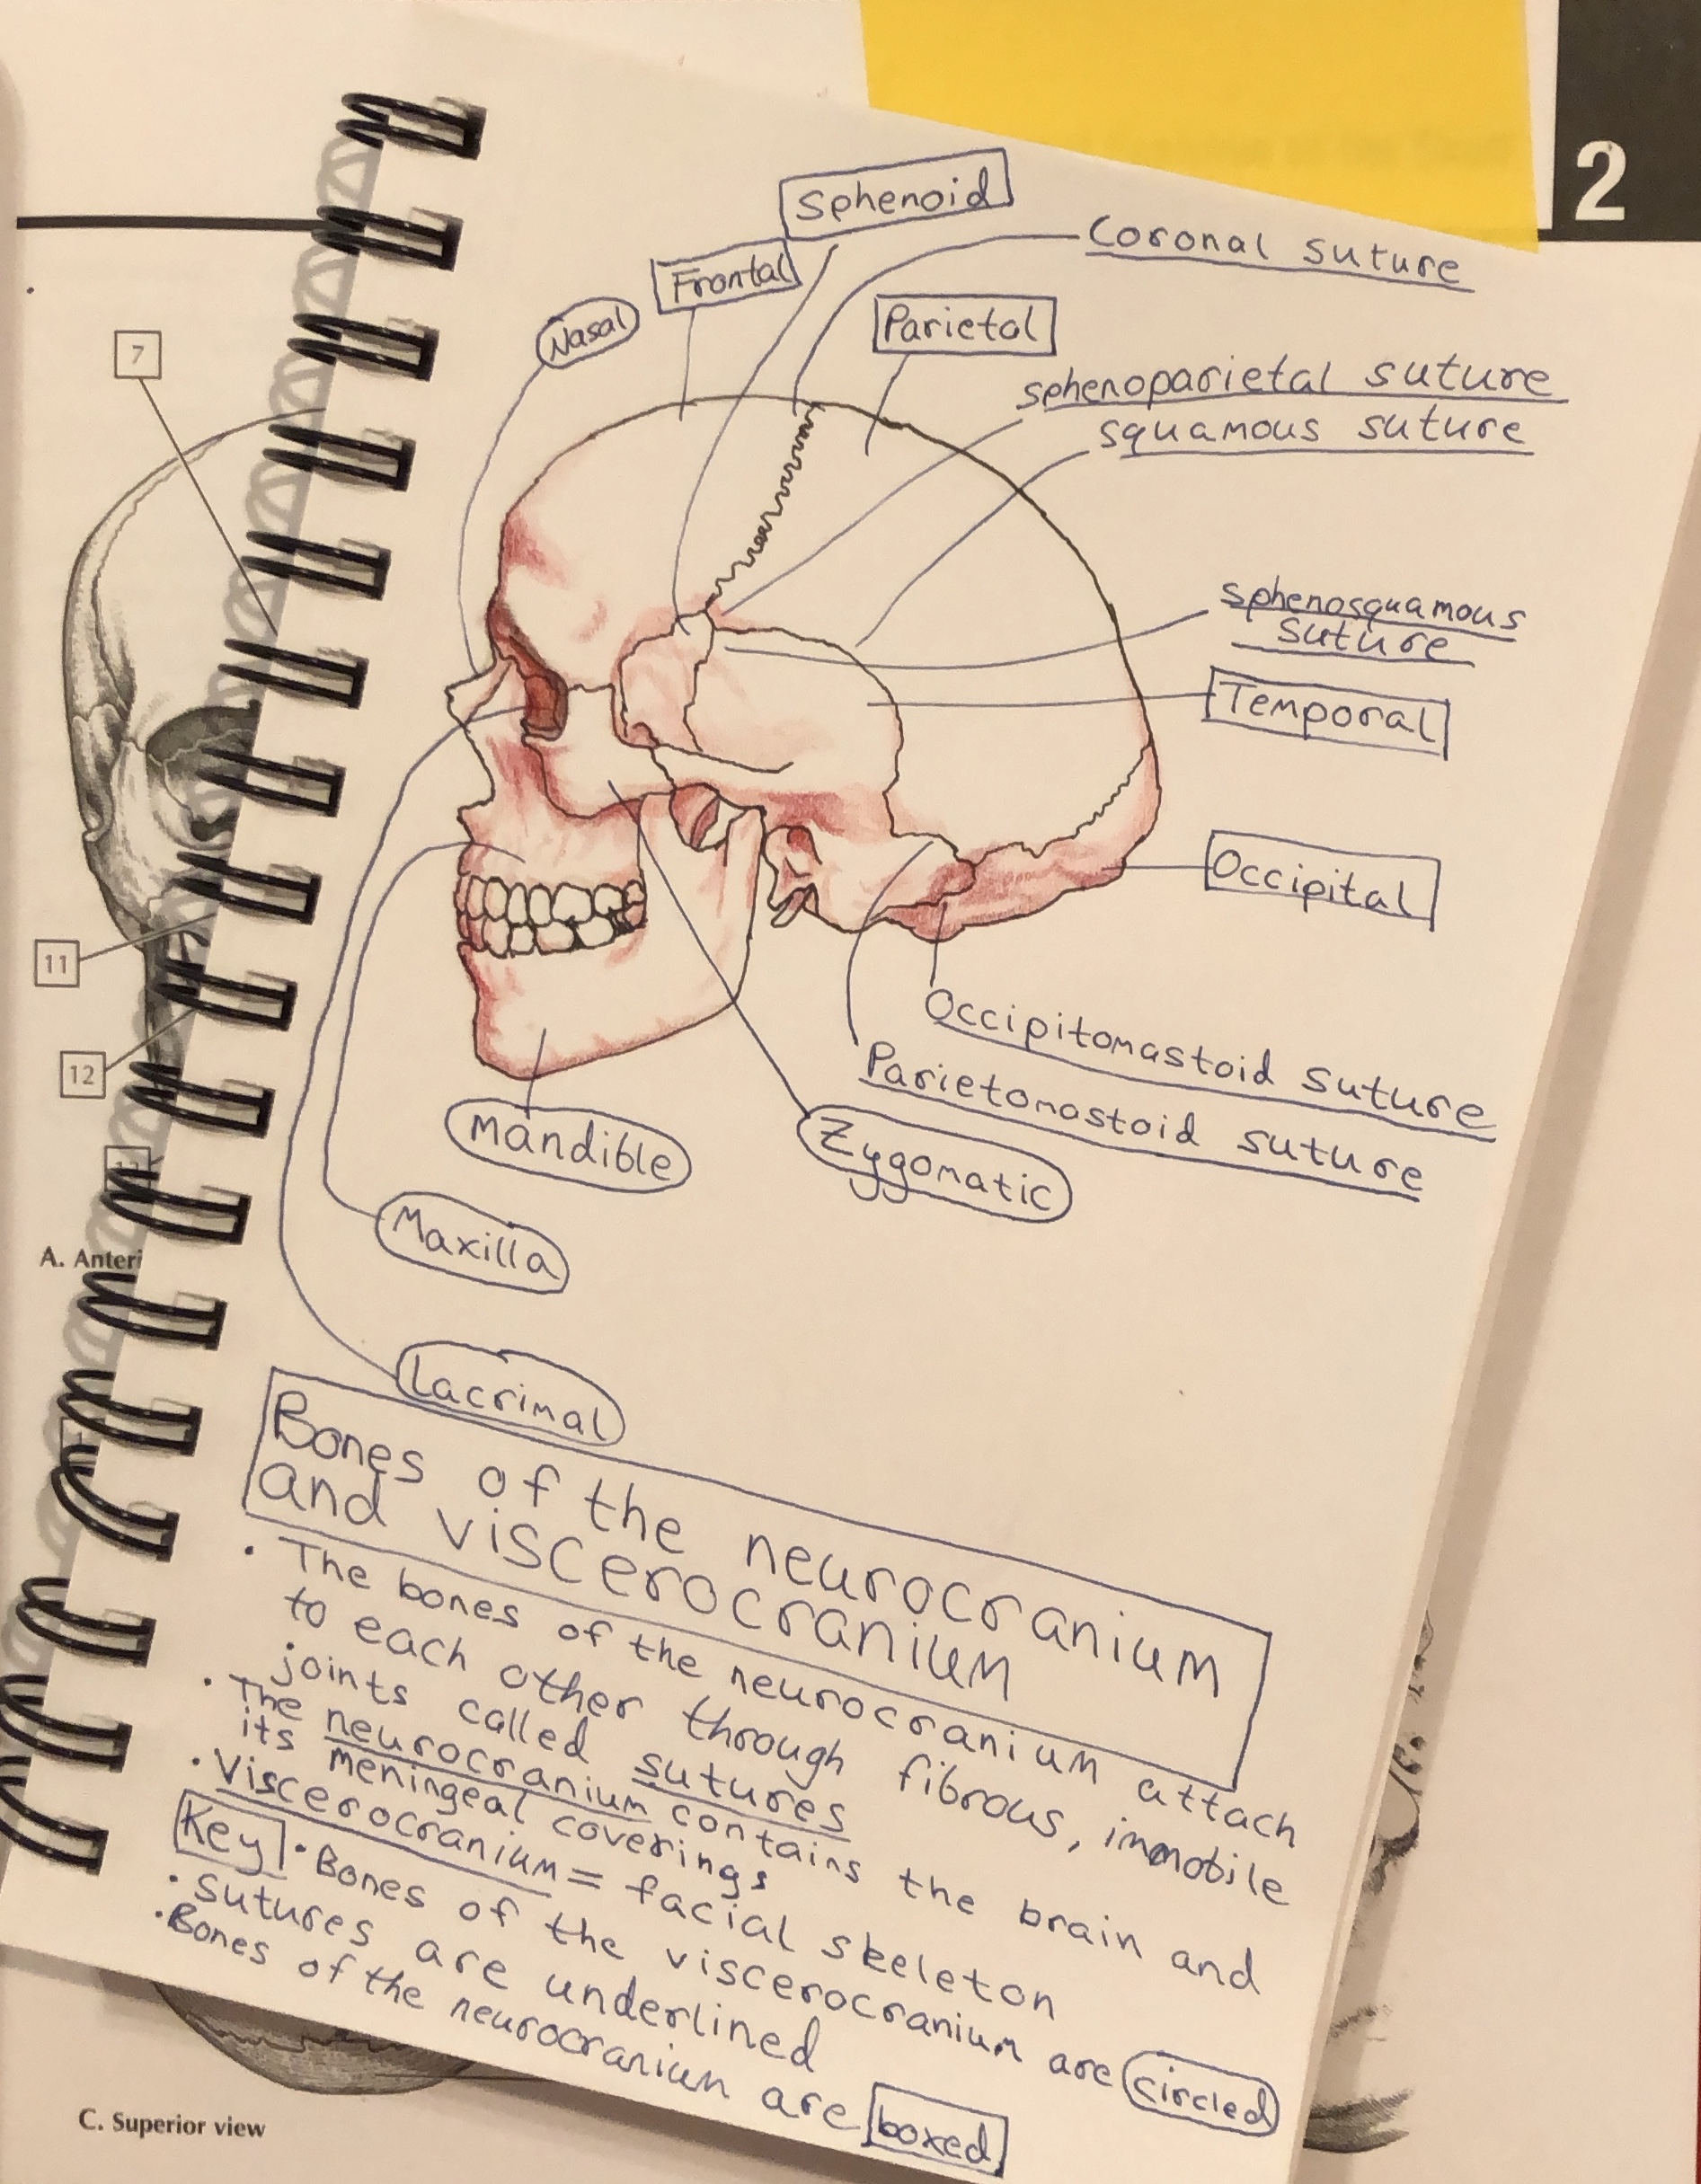 2
Sphenoid
Coronal suture
Frontal
Nasal
Parietal
7
sphenoparietal suture
squamous suture
sphenosquamous
suture
Temporal
Occipital
11
Occipitomastoid suture
12
Parietomastoid suture
Mandible
Zygomatic
Maxilla
A. Anteri
Lacrimal
Bones of the neurocranium
and viscerocranium
• The bones of the neurocranium attach
to each other through fibrous, immobile
joints called sutures
• The neurocranium contains the brain and
its meningeal coverings
• Viscerocranium = facial skeleton
Key • Bones of the viscerocranium are circled
• Sutures are underlined
• Bones of the neurocranium are boxed
C. Superior view